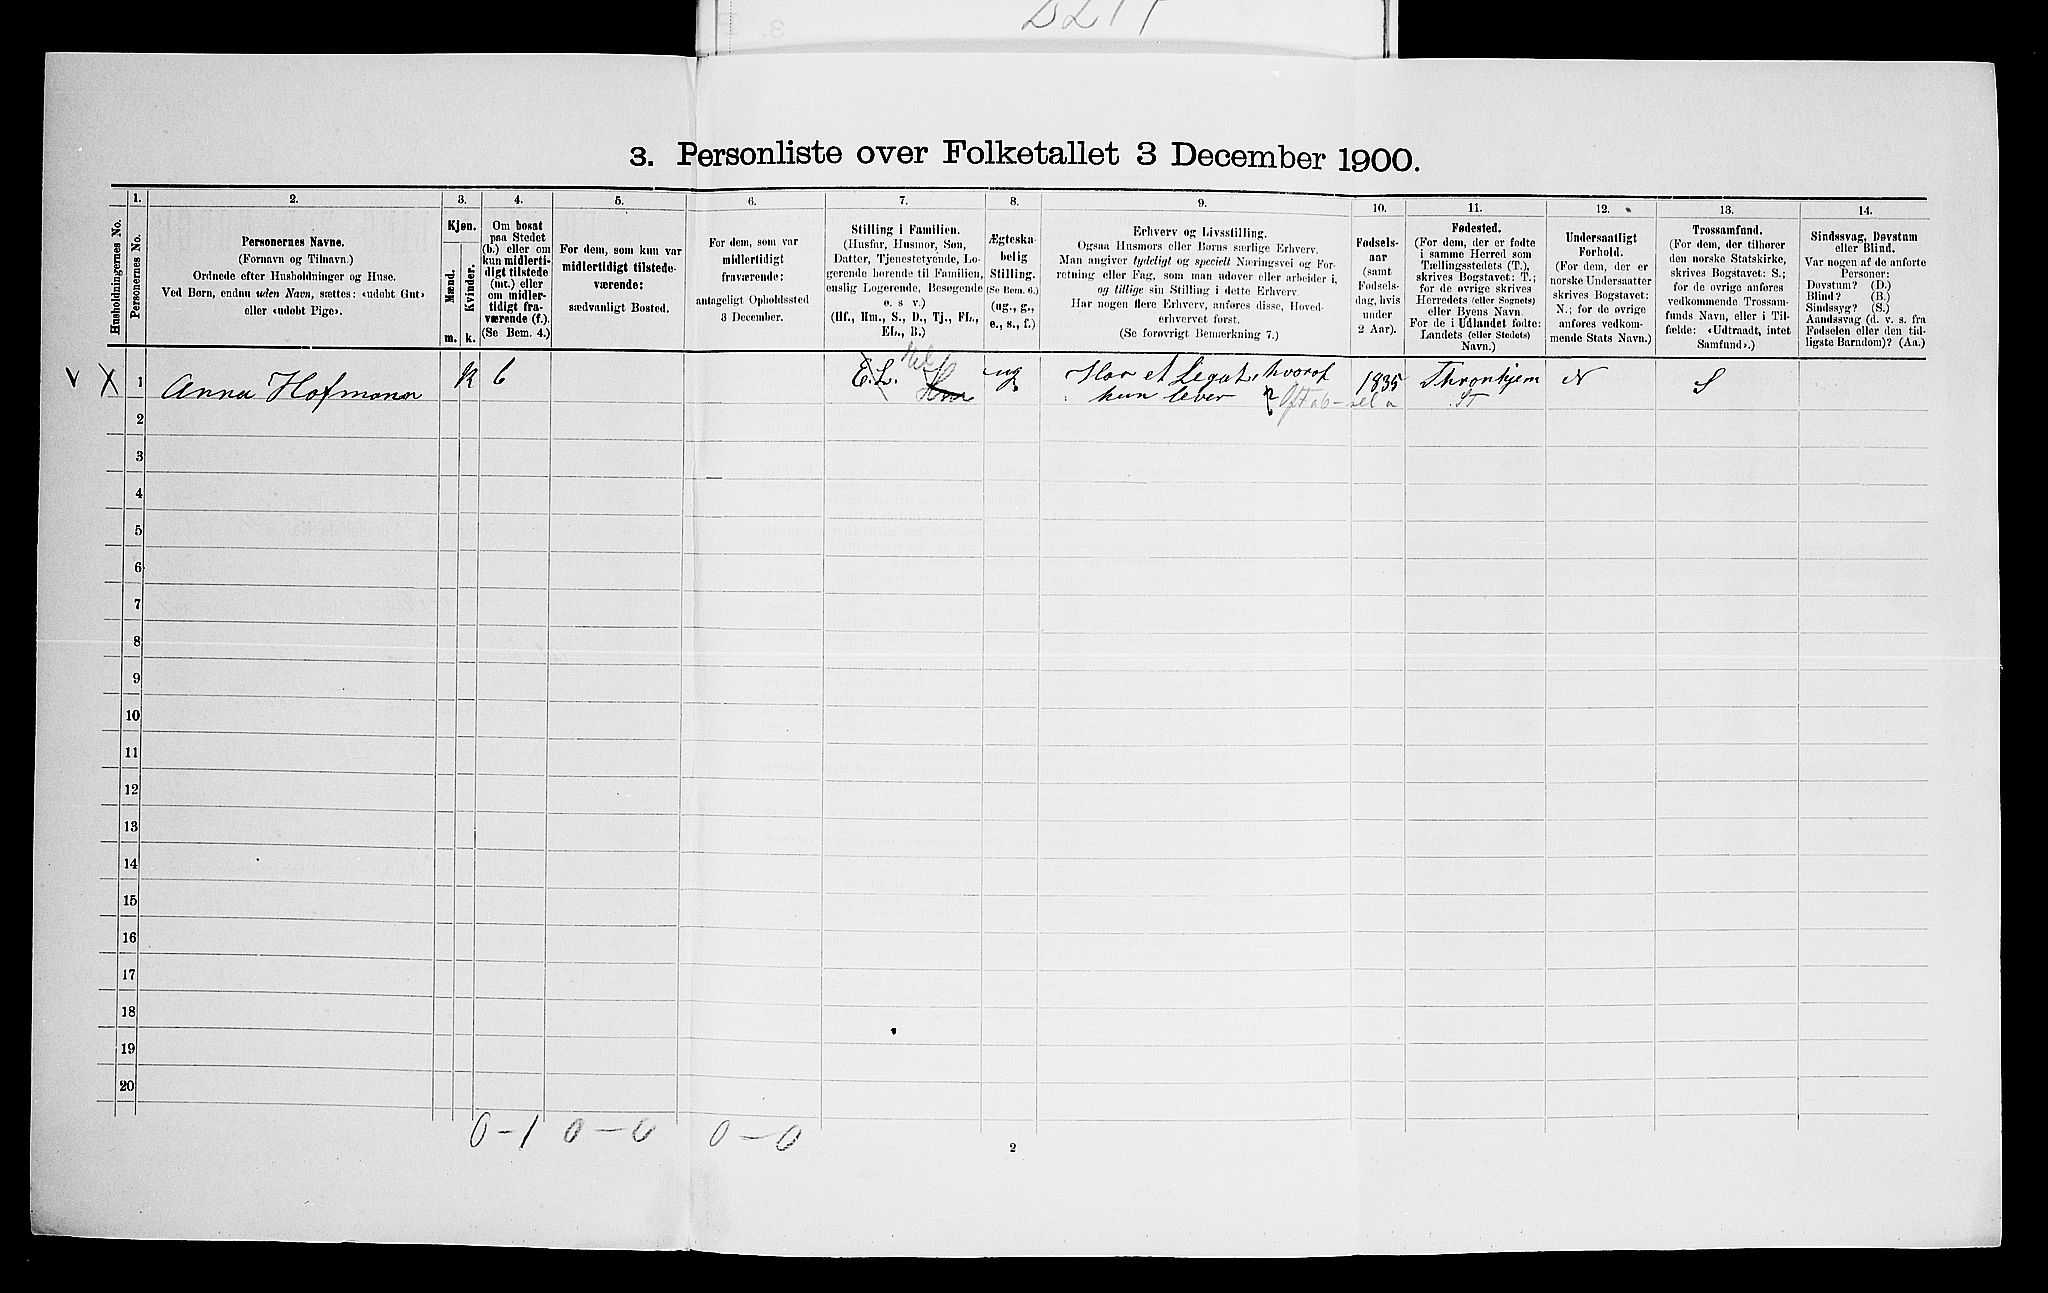 3. Personliste over Folketallet 3 December 1900.
Husholdningernes No.
1.
Personernes No.
2.
Personernes Navne.
(Fornavn og Tilnavn.)
Ordnede efter Husholdninger og Huse.
Ved Børn, endnu uden Navn, sættes: «udøbt Gut»
eller «udøbt Pige».
3.
Kjøn.
Mænd.
Kvinder.
m.
k.
4.
Om bosat
paa Stedet
(b.) eller om
kun midlerti-
digt tilstede
(mt.) eller
om midler-
tidigt fra-
værende (f.).
(Se Bem. 4.)
5.
For dem, som kun var
midlertidigt tilstede-
værende:
sædvanligt Bosted.
6.
For dem, som var
midlertidigt
fraværende:
antageligt Opholdssted
3 December.
7.
Stilling i Familien.
(Husfar, Husmor, Søn,
Datter, Tjenestetyende, Lo-
gerende hørende til Familien,
enslig Logerende, Besøgende
o. s. v.)
(Hf., Hm., S., D., Tj., FL.,
EL., B.)
8.
Ægteska-
belig
Stilling.
(Se Bem. 6.)
(ug., g.,
e., s., f.)
9.
Erhverv og Livsstilling.
Ogsaa Husmors eller Børns særlige Erhverv.
Man angiver tydeligt og specielt Næringsvei og For-
retning eller Fag, som man udøver eller arbeider i,
og tillige sin Stilling i dette Erhverv.
Har nogen flere Erhverv, anføres disse, Hoved-
erhvervet først.
(Se forøvrigt Bemærkning 7.)
10.
Fødsels-
aar
(samt
Fødsels-
dag, hvis
under
2 Aar).
11.
Fødested.
(For dem, der er fødte
i samme Herred som
Tællingsstedets (T.),
skrives Bogstavet: T.;
for de øvrige skrives
Herredets (eller Sognets)
eller Byens Navn.
For de i Udlandet fødte:
Landets (eller Stedets)
Navn.)
12.
Undersaatligt
Forhold.
(For dem, der er
norske Undersaatter,
skrives Bogstavet:
N.; for de øvrige
anføres vedkom-
mende Stats Navn.)
13.
Trossamfund.
(For dem, der tilhører
den norske Statskirke,
skrives Bogstavet: S.;
for de øvrige anføres
vedkommende Trossam-
funds Navn, eller i Til-
fælde: «Udtraadt, intet
Samfund».)
14.
Sindssvag, Døvstum
eller Blind.
Var nogen af de anførte
Personer:
Døvstum? (D.)
Blind? (B.)
Sindssyg? (S.)
Aandssvag (d. v. s. fra
Fødselen eller den tid-
ligste Barndom)? (Aa.)
V X 1 Anna Hofmann k b E.L. Hm ug Har et Legat, hvoraf 1835 Thronhjem N S
hun lever T
2
3
4
5
6
7
8
9
10
11
12
13
14
15
16
17
18
19
20
0-1 0-0 0-0
2